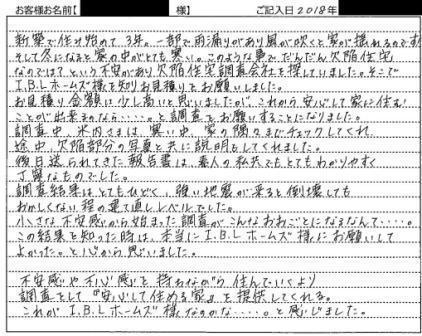 お客様お名前【 様】 ご記入日2018年
新築で住み始めて3年。一部で雨漏りがあり風が吹くと家が揺れるのです
そして冬になると家の中がとても寒い。このような事で、だんだん欠陥住宅
なのでは?という不安があり欠陥住宅調査会社を探していました。そこで
I.B.Lホームズ様を知りお見積りをお願いしました。
お見積り金額は少し高いと思いましたが、これから安心して家に住む
ことが出来るなら・・・・。と調査をお願いすることになりました。
調査中、米内さまは、寒い中、家の隅々までチェックしてくれ、
途中、欠陥部分の写真と共に説明もしてくれました。
後日送られてきた報告書は、素人の私共でもとてもわかりやすく
丁寧なものでした。
調査結果はとてもひどく、強い地震が来ると倒壊しても
おかしくない程の違反レベルでした。
小さな不安感から始まった調査がこんなおおごとになるなんて・・・・。
この結果を知った時は、本当にI.B.Lホームズ様にお願いして
よかった。と心から思いました。
不安感や不心感を持ちながら住んでいくより
調査をして『安心して住める家』を提供してくれる。
これがI.B.Lホームズ様なのかな・・・・。と感じました。